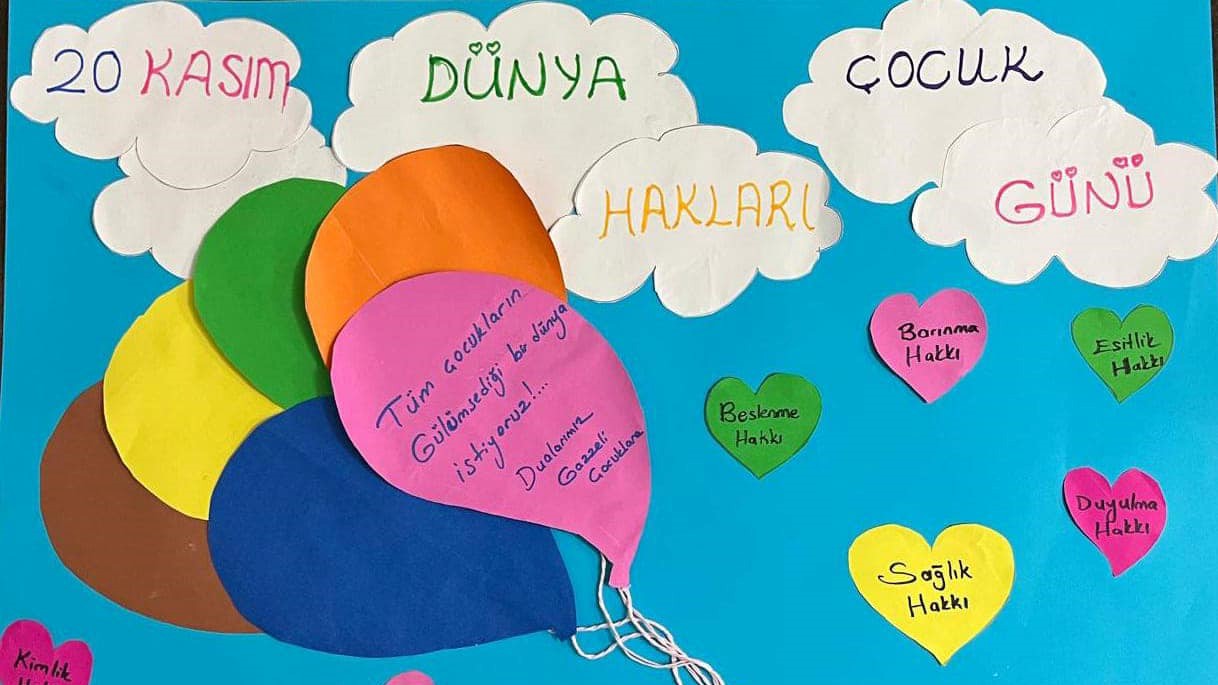 20 KASIM
DÜNYA
ÇOCUK
HAKLARI
GÜNÜ
Tüm çocukların
Gülümsediği bir dünya
istiyoruz!...
Dualarımız
Gazzeli
Çocuklara
Barınma
Hakkı
Esitlik
Hakkı
Beslenme
Hakkı
Duyulma
Hakkı
Sağlık
Hakkı
Kimlik